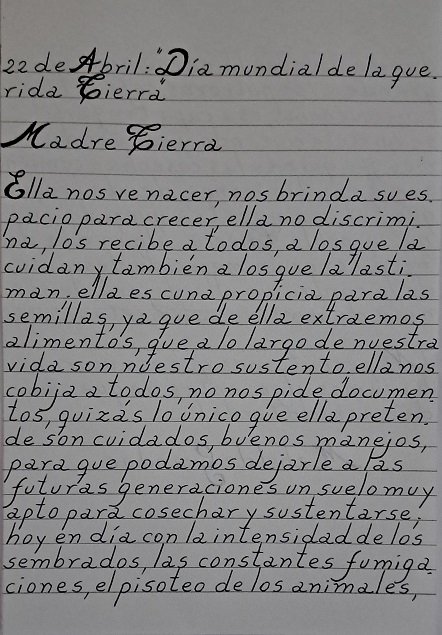 22 de Abril: "Día mundial de la que.
rida Tierra"
Madre Tierra
Ella nos ve nacer, nos brinda su es.
pacio para crecer, ella no discrimi.
na, los recibe a todos, a los que la
cuidan y también a los que la lasti.
man; ella es cuna propicia para las
semillas, ya que de ella extraemos
alimentos, que a lo largo de nuestra
vida son nuestro sustento, ella nos
cobija a todos, no nos pide documen
tos, quizás lo único que ella preten.
de son cuidados, buenos manejos,
para que podamos dejarle a las
futuras generaciones un suelo muy
apto para cosechar y sustentarse;
hoy en día con la intensidad de los
sembrados, las constantes fumiga.
ciones, el pisoteo de los animales,